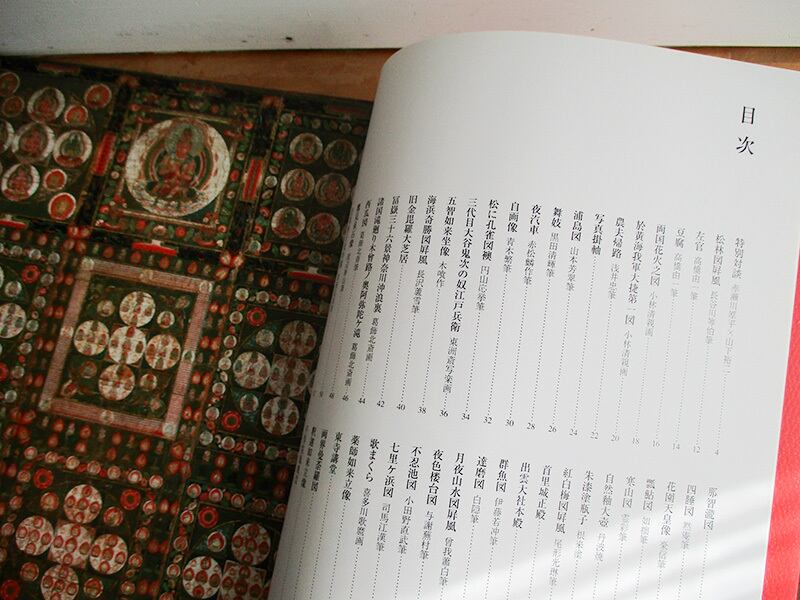 目次
特別対談 赤瀬川原平・山下裕二 4
松林図屏風 長谷川等伯筆 12
左官 高橋由一筆 14
豆腐 高橋由一筆 16
両国花火之図 小林清親画 18
於黄海我軍大捷第一図 小林清親画 20
農夫帰路 浅井忠筆 22
写真掛軸 24
浦島図 山本芳翠筆 26
舞妓 黒田清輝筆 28
夜汽車 赤松麟作筆 30
自画像 青木繁筆 32
松に孔雀図襖 円山応挙筆 34
三代目大谷鬼次の奴江戸兵衛 東洲斎写楽画 36
五智如来坐像 木喰作 38
海浜奇勝図屏風 長沢蘆雪筆 40
旧金毘羅大芝居 42
冨嶽三十六景神奈川沖浪裏 葛飾北斎画 44
諸国滝廻り木曽路ノ奥阿弥陀ヶ滝 葛飾北斎画 46
西瓜図 葛飾北斎筆 48
那智瀧図
四睡図 黙庵筆
花園天皇像
瓢鮎図 如拙筆
寒山図
自然釉大壺
朱漆塗瓶子 根来塗
紅白梅図屏風 尾形光琳筆
首里城正殿
出雲大社本殿
群魚図 伊藤若冲筆
達磨図 白隠筆
月夜山水図屏風 曾我蕭白筆
夜色楼台図 与謝蕪村筆
不忍池図 小田野直武筆
七里ヶ浜図 司馬江漢筆
歌まくら 喜多川歌麿画
薬師如来立像
東寺講堂
両界曼荼羅図